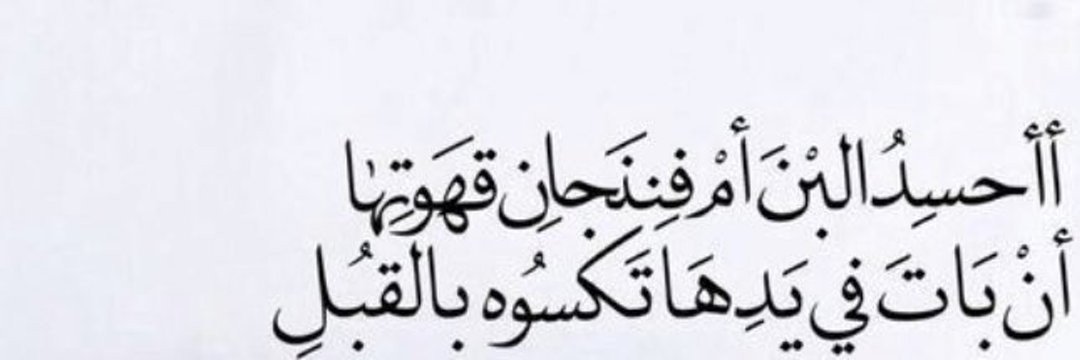 أأحسِدُ البْنَ أمْ فِنذَجانِ قهَوَتِهٰا
أنْ بَاتَ في يَدِهَا تَكسُوه بالقبُلِ